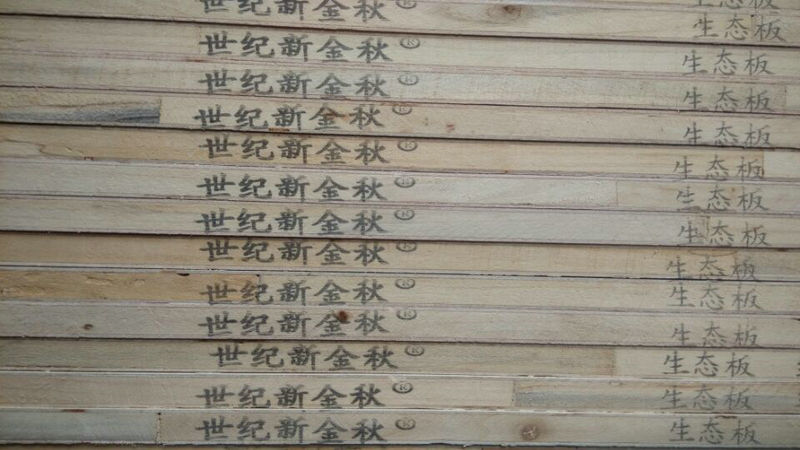 世纪新金秋 生态板
世纪新金秋® 生态板
世纪新金秋® 生态板
世纪新金秋® 生态板
世纪新金秋® 生态板
世纪新金秋® 生态板
世纪新金秋® 生态板
世纪新金秋® 生态板
世纪新金秋® 生态板
世纪新金秋® 生态板
世纪新金秋® 生态板
世纪新金秋® 生态板
世纪新金秋® 生态板
生态板